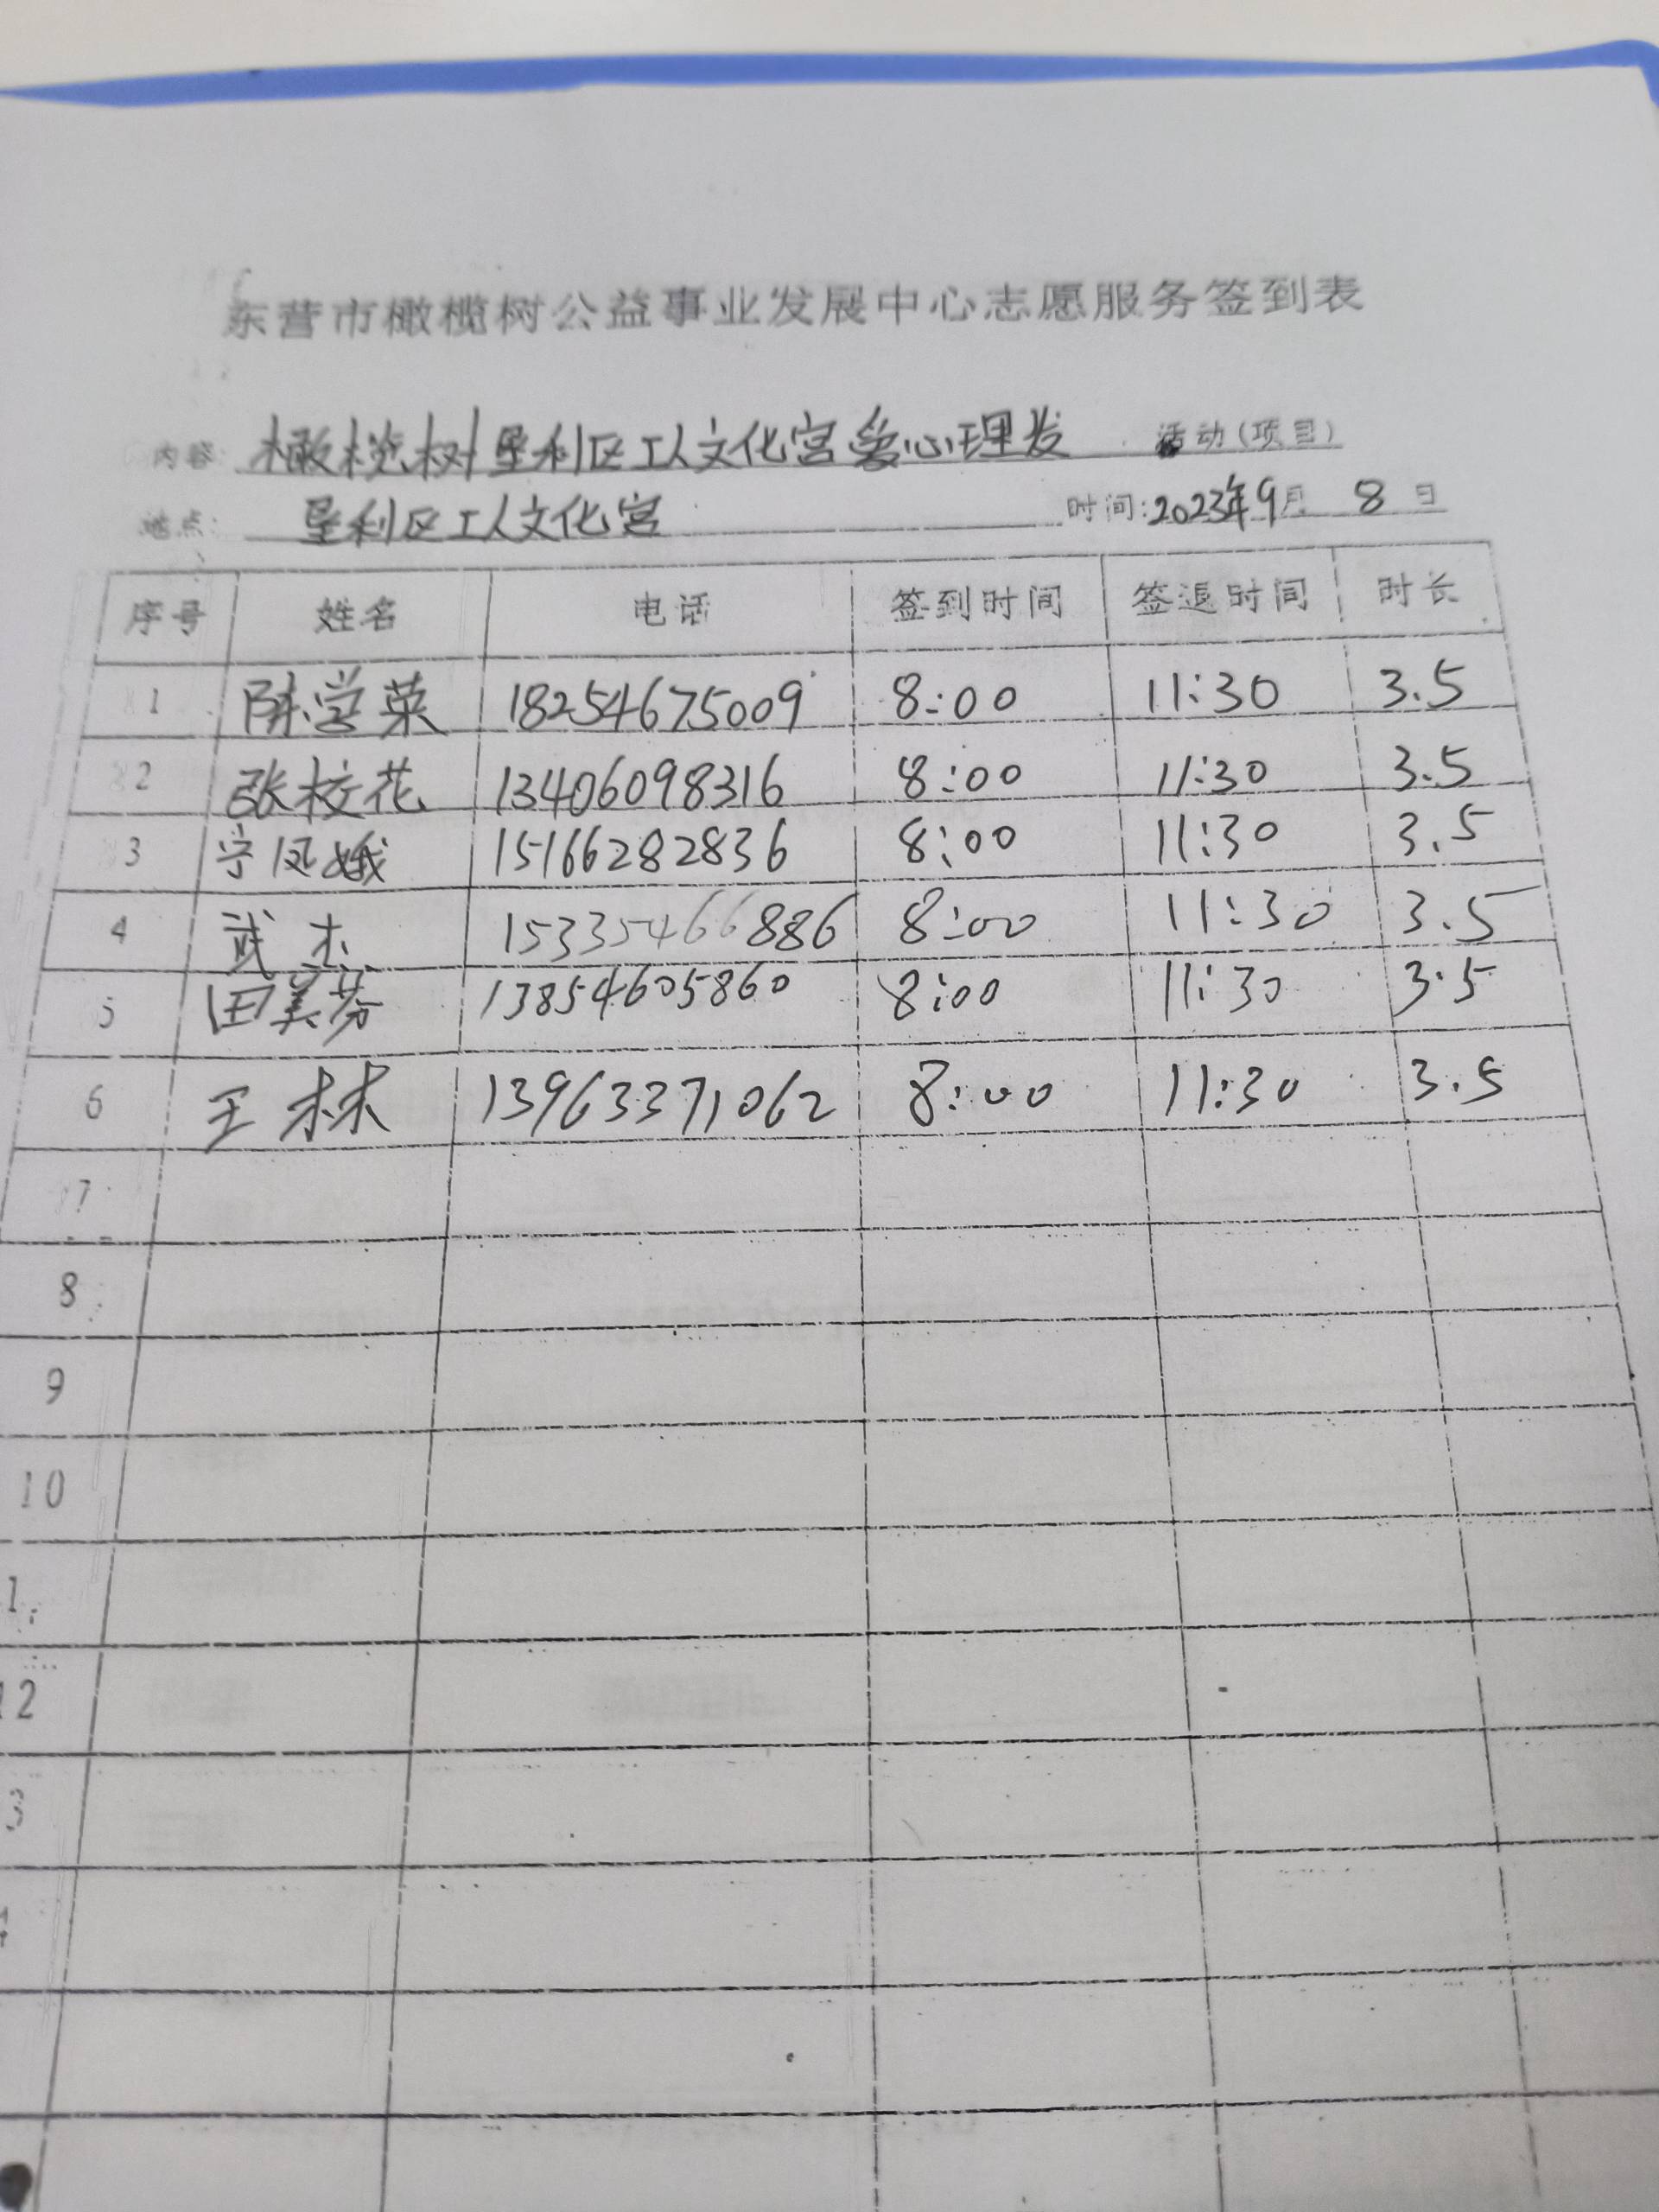 东营市橄榄树公益事业发展中心志愿服务签到表
内容: 橄榄树垦利区工人文化宫爱心理发 活动(项目)
地点: 垦利区工人文化宫 时间:2023年9月 8 日
序号 姓名 电话 签到时间 签退时间 时长
1 陈学荣 18254675009 8:00 11:30 3.5
2 张校花 13406098316 8:00 11:30 3.5
3 宁凤娥 15166282836 8:00 11:30 3.5
4 武杰 15335466886 8:00 11:30 3.5
5 田美芬 13854605860 8:00 11:30 3.5
6 王林 13963371062 8:00 11:30 3.5
7
8
9
10
12